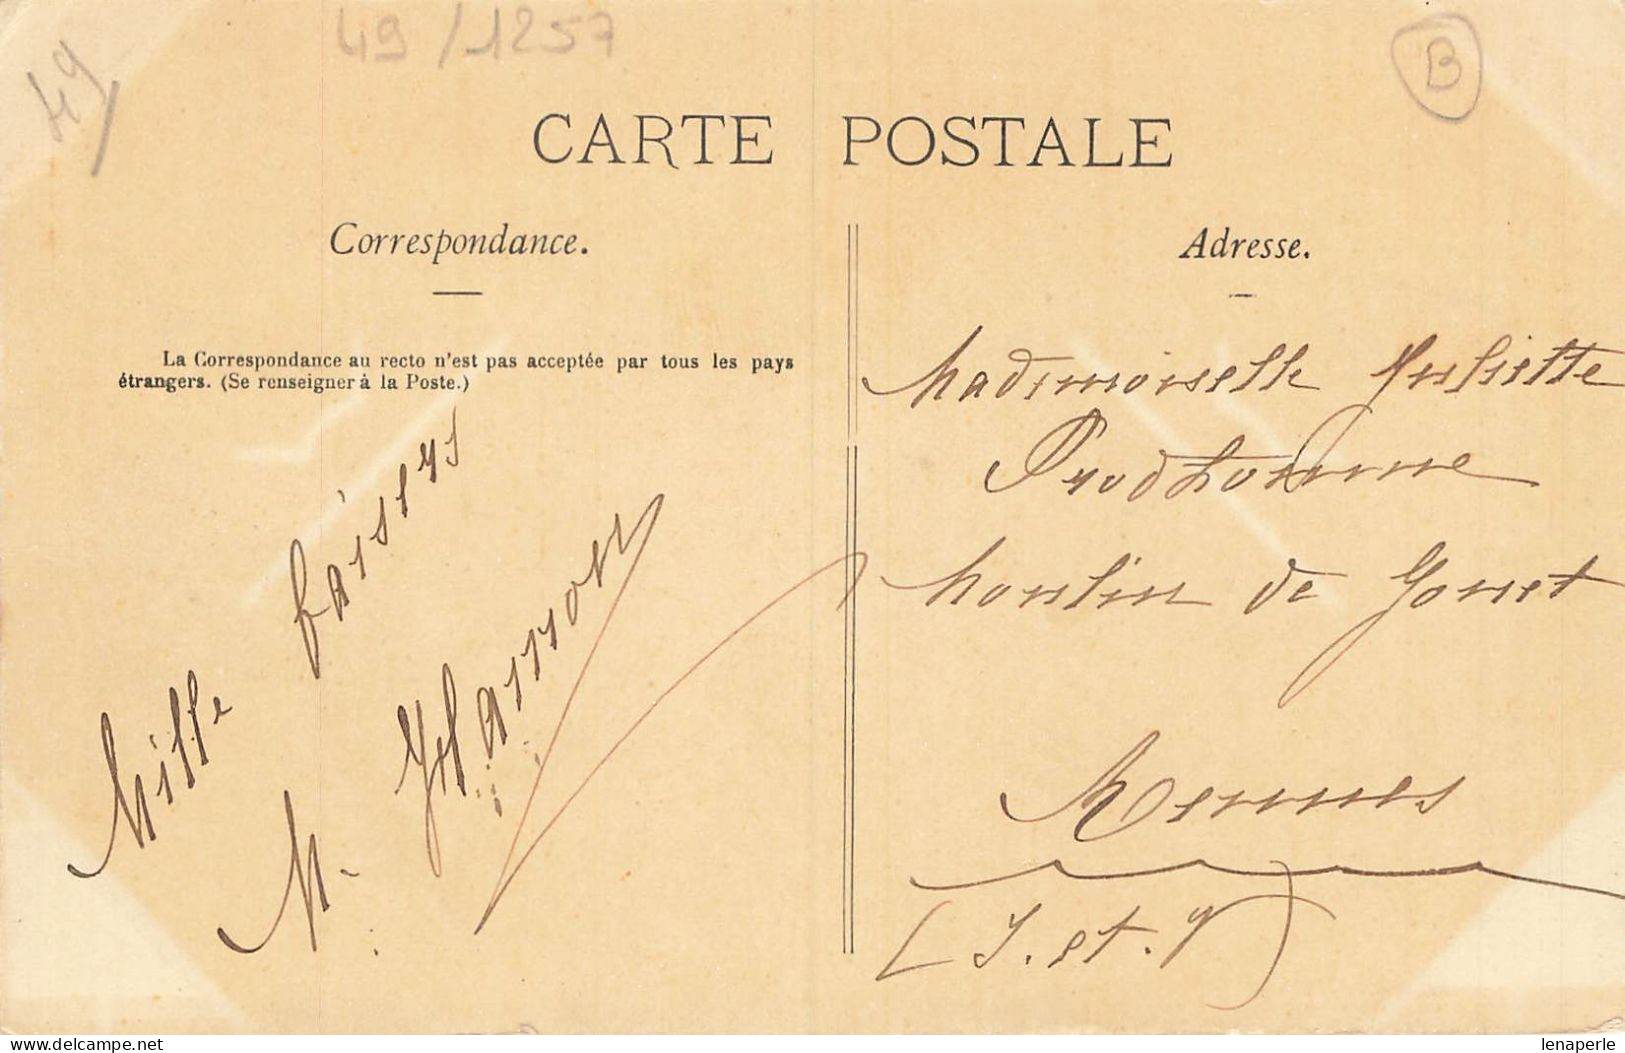 49
49/1257
B
CARTE POSTALE
Correspondance.
La Correspondance au recto n'est pas acceptée par tous les pays
étrangers. (Se renseigner à la Poste.)
Mille baisers
M.
Adresse.
Mademoiselle Juliette
Prodhomme
Moulin de Gouet
Rennes
(I. et. V)
delcampe.net
lenaperle